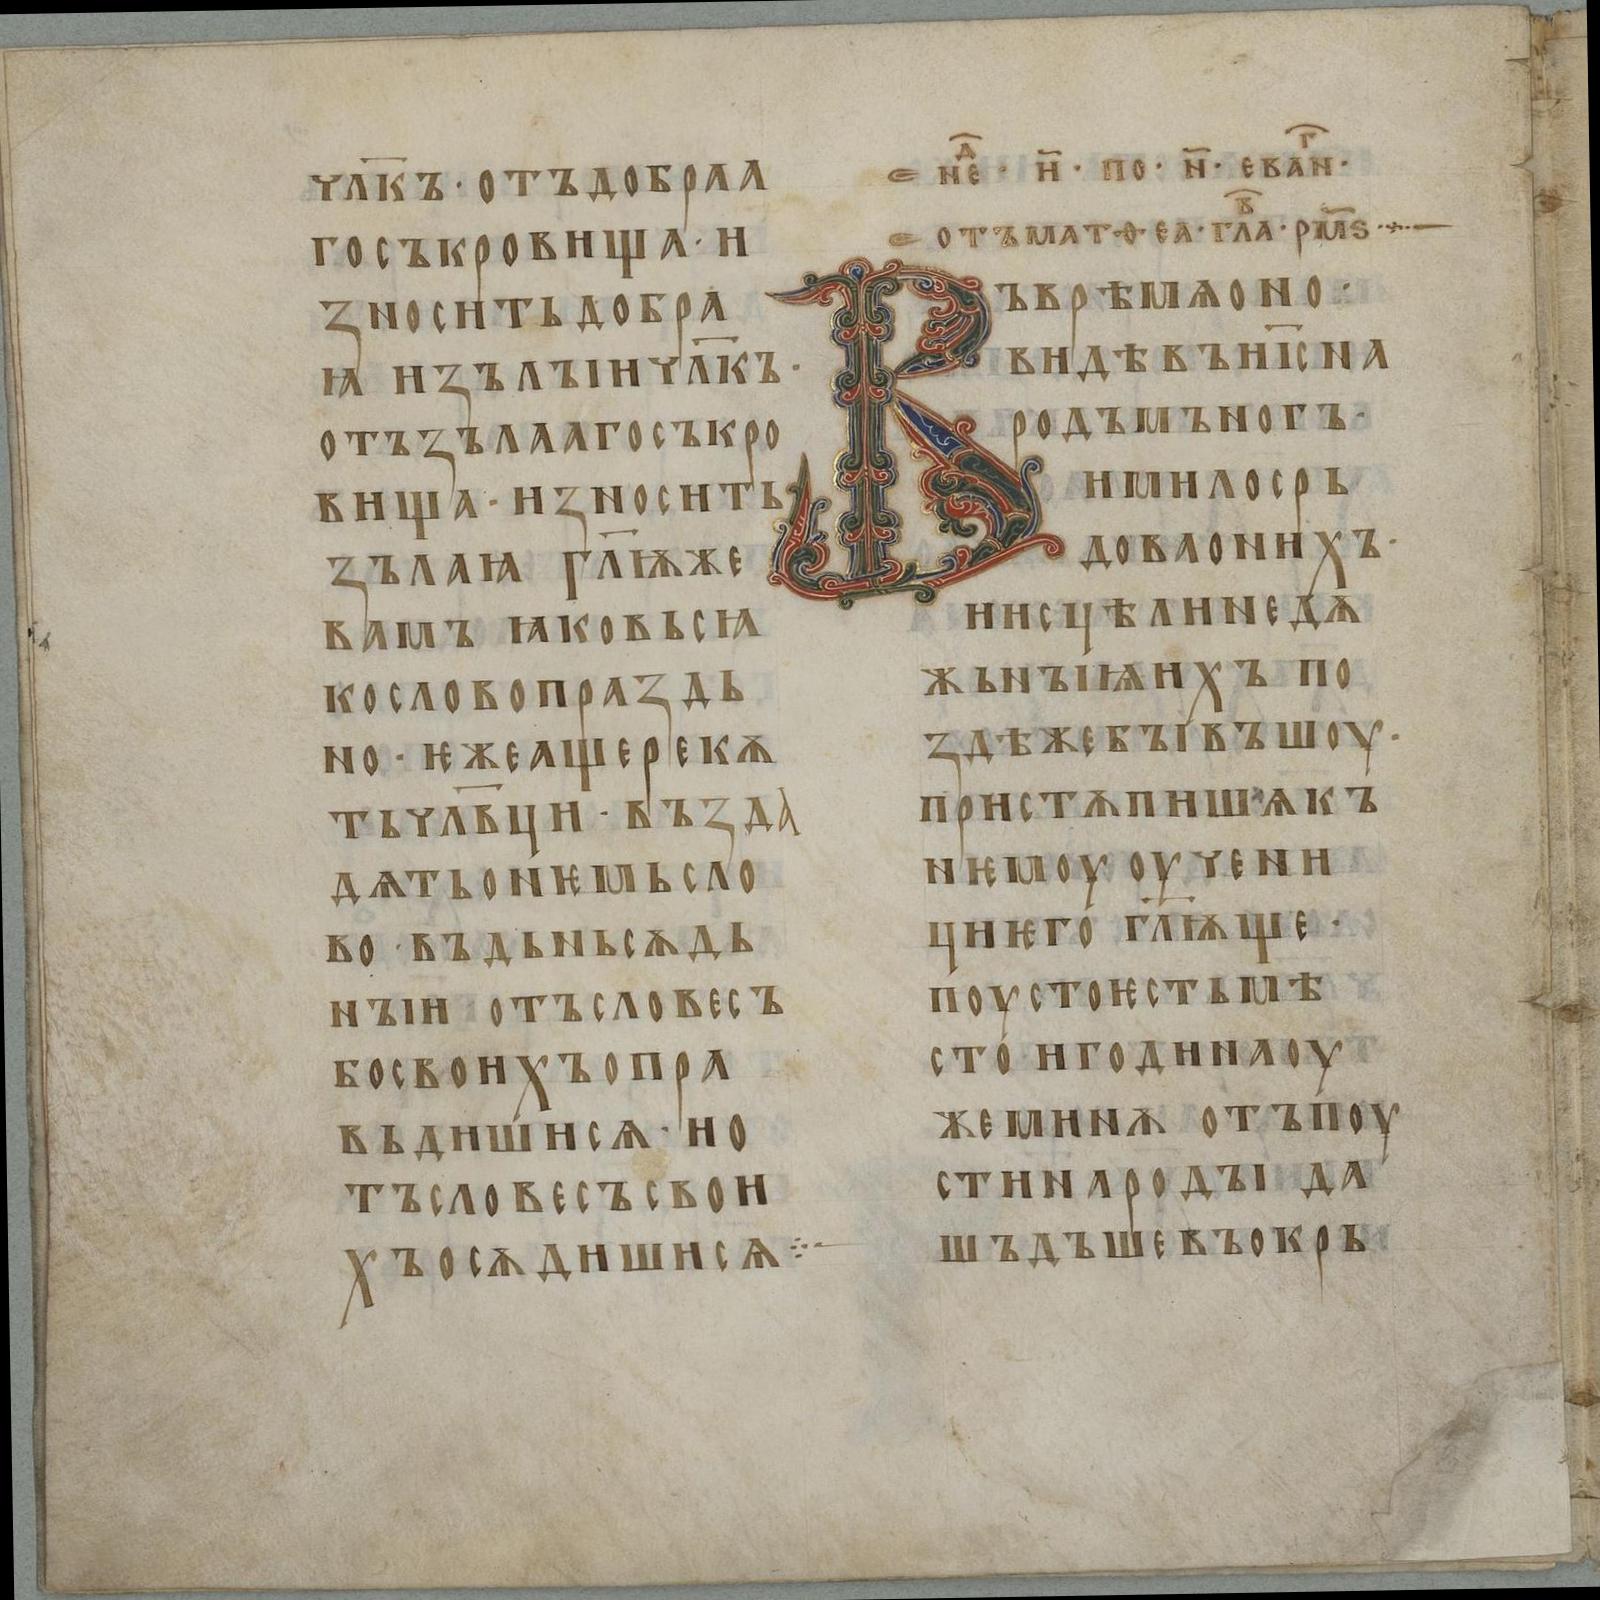 члк҃ъ · отъдобраа
госъкровища · и
ꙁноситьдобра
ꙗ иꙁълъꙇичлк҃ъ ·
отъꙁълаагосъкро
вища · иꙁносить
ꙁълаꙗ гл҃ѭже
вамъ ꙗковьсꙗ
кословопраꙁдь
но · ѥжеащерекѫ
тьчлв҃ци · въꙁда
дѧтьон҄ѥмьсло
во · въдьньсѫдь
нъꙇи отъсловесъ
босвоихъопра
вьдишисѧ · ио
тъсловесъсвои
хъосѫдишисѧ ⁘ —
нед҃ · и҃ · по · н҃ · еваг҃н ·
отъматѳеа · гл҃ав · рм҃ѕ · ⁘ —
Въврѣмѧоно ·
видѣвъиі҃сна
родъмъногъ ·
имилосрь
довлонихъ ·
иисцѣлинедѫ
жьнъꙇѩихъ по
ꙁдѣжебъꙇвъшоу ·
пристѫпишѧкъ
н҄ѥмоу оучени
циѥго гл҃ѭще ·
поустоѥстьмѣ
сто игодинаоу
жеминѫ отъпоу
стинародъꙇ да
шъдъшевъокрь